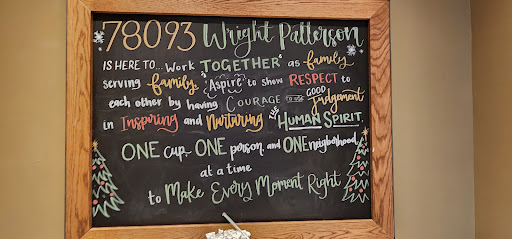 78093 Wright Patterson
IS HERE TO... Work TOGETHER as family
serving family. Aspire to show RESPECT to
each other by having COURAGE to use GOOD Judgement
in Inspiring and Nurturing THE HUMAN SPIRIT.
ONE cup, ONE person, and ONE neighborhood
at a time
to Make Every Moment Right